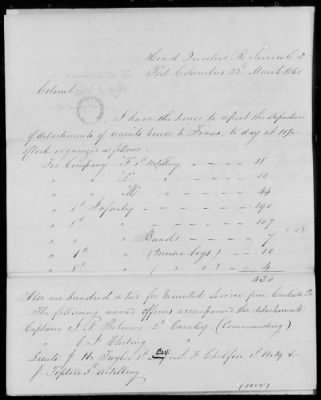 Head Quarters Rg Service E. D.
Fort Columbus 22d March 1860
Colonel
I have the honor to report the departure
of detachments of recruits hence to Texas, to day at
o'clock organized as follows:
For Company F 1st Artillery - - - - 18
" " L " - - - - 10
" " M " - - - - 44
" 1st Infantry - - - - 190
" 8th " - - - - 107
" " " Bands - - - - 7
" 1st " (Music boys) - - 10
" 8th " ( " " ) - - 4
Also one hundred & two for Mounted Service from Carlisle
The following named officers accompanied the detachments
Captains 2d Cavalry. (Commanding)
" C. J. Whiting "
Lieuts J. H. Taylor 1st Cav
J. Artillery
(over)